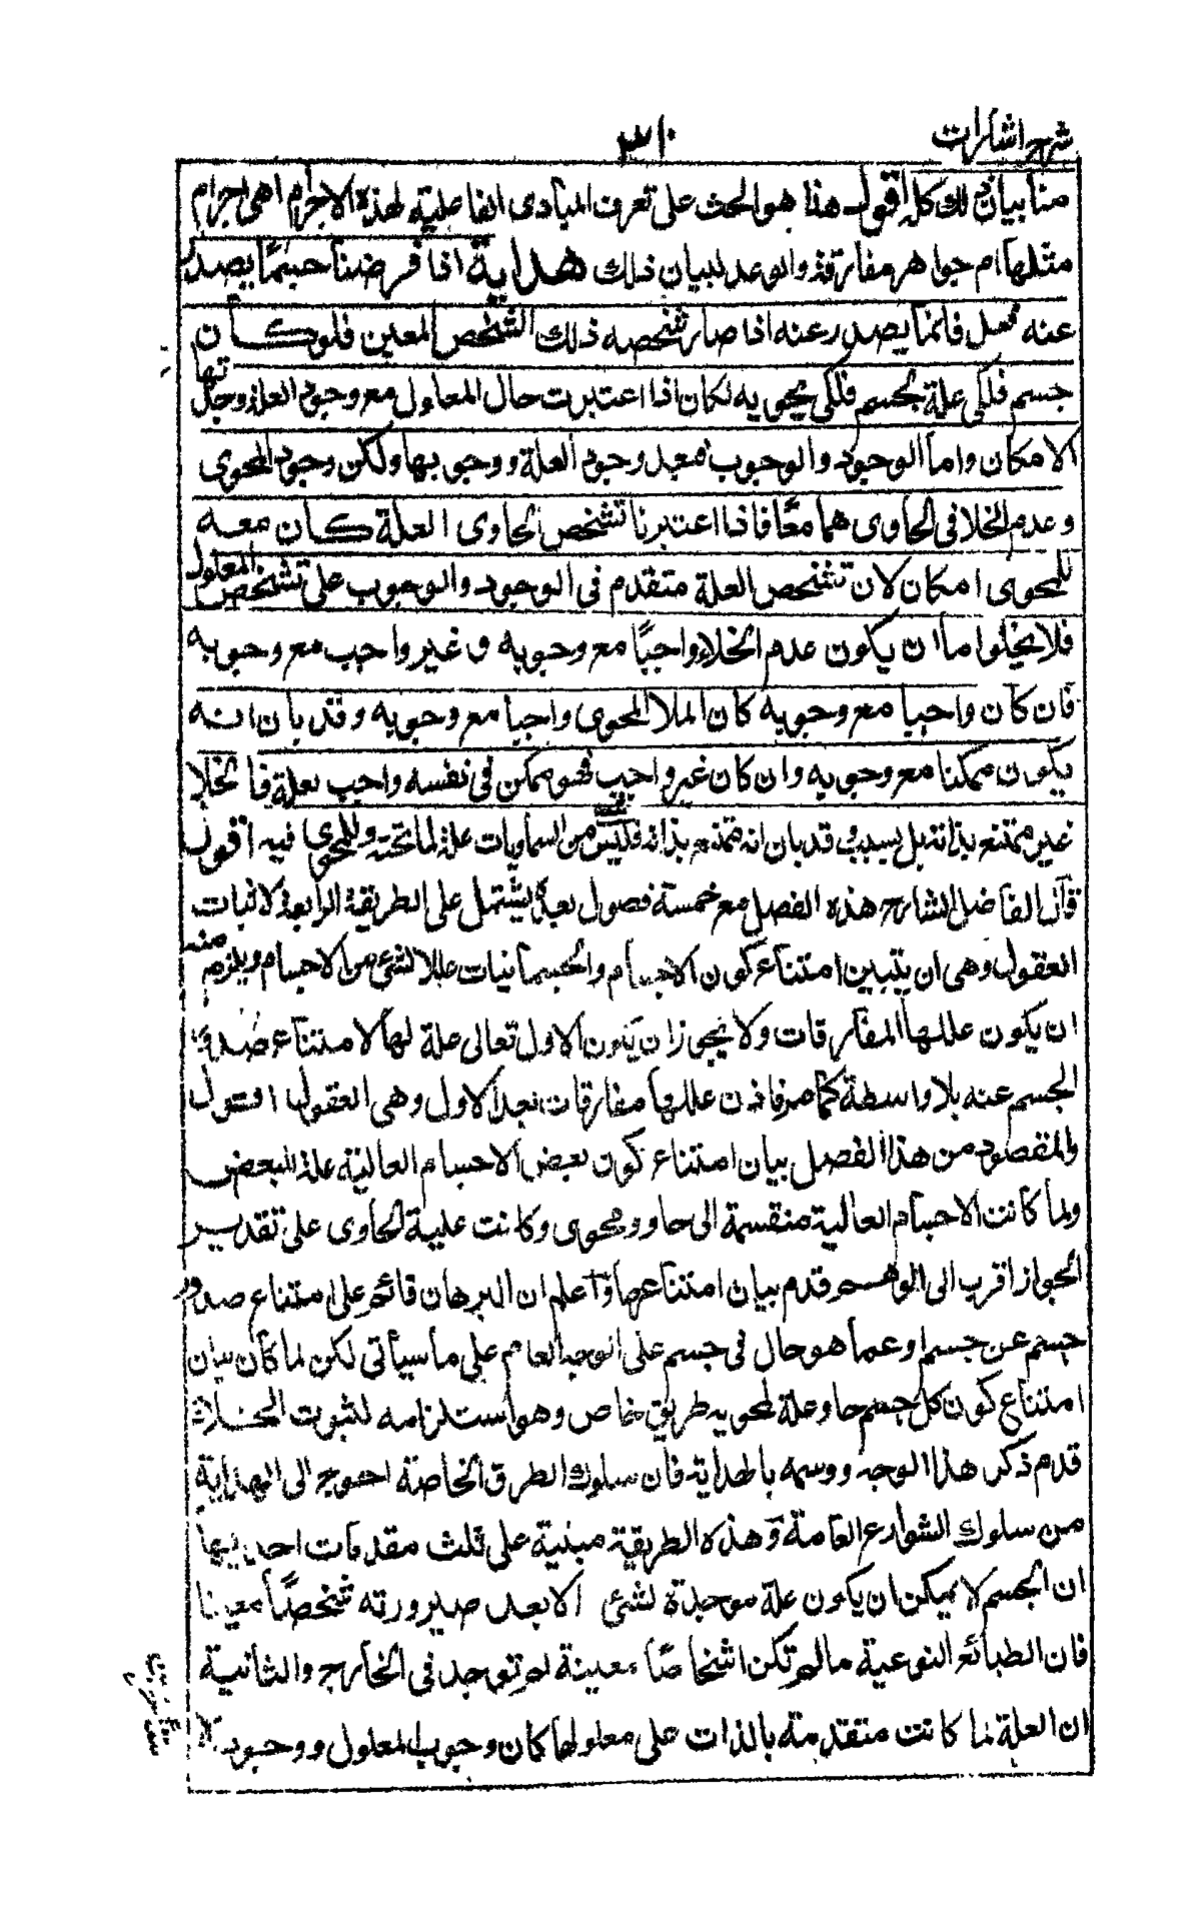 شرح اشارات
٣١٠
منا بيان ذلك كله اقول هذا هو الحث على تعرف المبادى الفاعلية لهذه الاجرام اهى اجرام
مثلها ام جواهر مفارقة والوعد لبيان ذلك هداية اذا فرضنا جسما يصدر
عنه فعل فانما يصدر عنه اذا صار شخصه ذلك الشخص المعين فلو كان
جسم فلكى علة لجسم فلكى يحويه لكان اذا اعتبرت حال المعلول مع وجود العلة وجدتها
الامكان واما الوجود والوجوب فبعد وجود العلة ووجوبها ولكن وجود المحوى
وعدم الخلا فى الحاوى هما معا فاذا اعتبرنا تشخص الحاوى العلة كان معه
للمحوى امكان لان تشخص العلة متقدم فى الوجود والوجوب على تشخص المعلول
فلا يخلو اما ان يكون عدم الخلاء واجبًا مع وجوبه و غير واجب مع وجوبه
فان كان واجبا مع وجوبه كان الملا المحوى واجبا مع وجوبه وقد بان انه
يكون ممكنا مع وجوبه وان كان غير واجب فهو ممكن فى نفسه واجب بعلة فالخلا
غير ممتنع بذاته بل بسبب وقد بان انه ممتنع بذاته فليس من السماويات علة لما تحته وللمحوى فيه اقول
قال الفاضل الشارح هذه الفصل مع خمسة فصول بعده يشتمل على الطريقة الرابعة لاثبات
العقول وهى ان يتبين امتناع كون الاجسام والجسمانيات عللا لشئ من الاجسام ويلزم منه
ان يكون عللها المفارقات ولا يجوز ان يكون الاول تعالى علة لها لامتناع صدور
الجسم عنه بلا واسطة كما مر فاذن عللها مفارقات بعد الاول وهى العقول اقول
والمقصود من هذا الفصل بيان امتناع كون بعض الاجسام العالية علة للبعض
ولما كانت الاجسام العالية منقسمة الى حاو ومحوى وكانت علية الحاوى على تقدير
الجواز اقرب الى الوهم قدم بيان امتناعها واعلم ان البرهان قائم على امتناع صدور
جسم عن جسم او عما هو حال فى جسم على الوجه العام على ما سيأتى لكن لما كان بيان
امتناع كون كل جسم حاو علة لمحويه طريق خاص وهو استلزامه لثبوت الخلاء
قدم ذكر هذا الوجه ووسمه بالهداية فان سلوك الطرق الخاصة احوج الى الهداية
من سلوك الشوارع العامة وهذه الطريقة مبنية على ثلث مقدمات احديها
ان الجسم لا يمكن ان يكون علة موجدة لشئ الا بعد صيرورته شخصًا معينا
فان الطبائع النوعية مالم تكن اشخاصًا معينة لم توجد فى الخارج والثانية
ان العلة لما كانت متقدمة بالذات على معلولها كان وجوب المعلول ووجوده